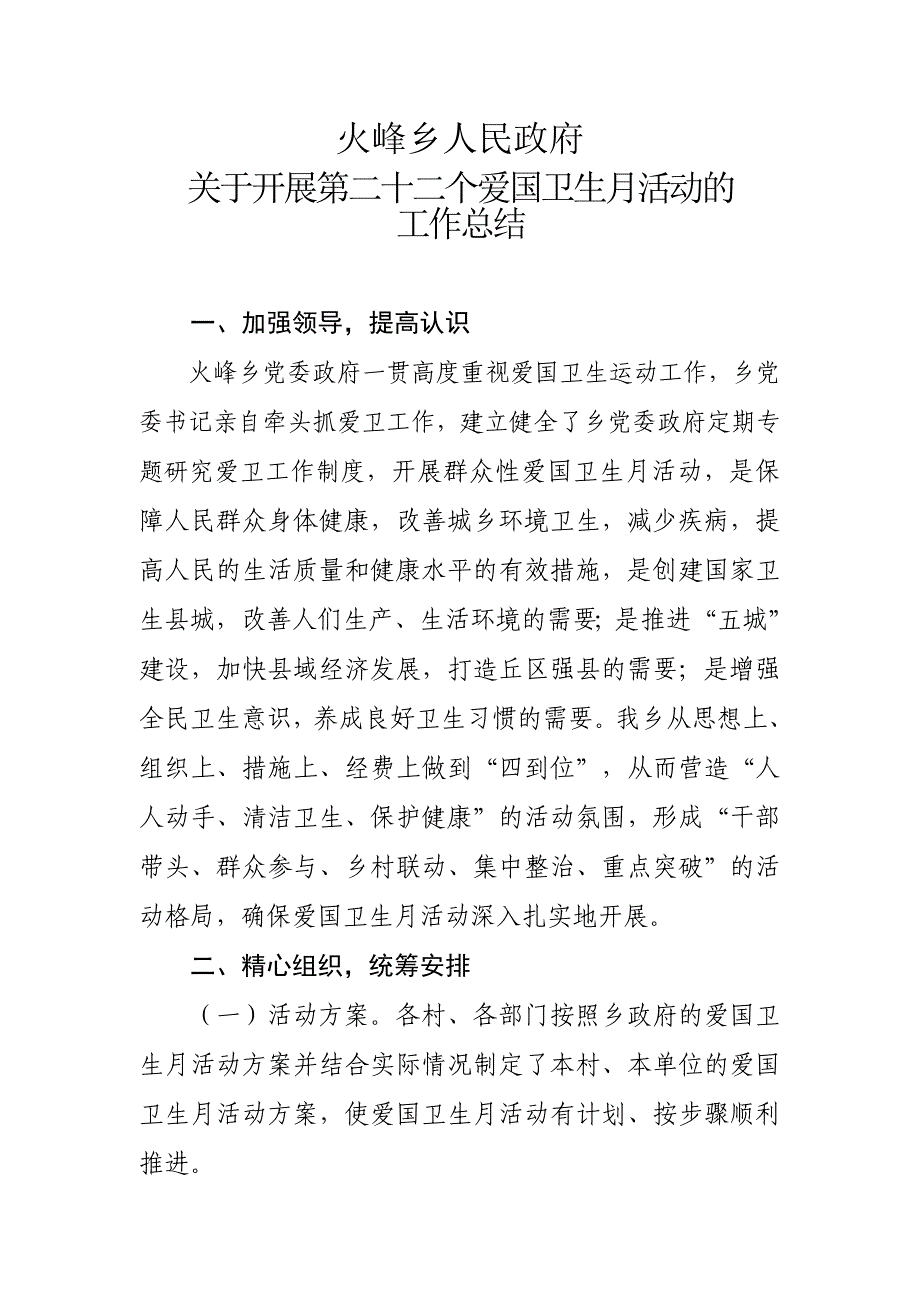 火峰乡人民政府
关于开展第二十二个爱国卫生月活动的
工作总结
一、加强领导，提高认识
火峰乡党委政府一贯高度重视爱国卫生运动工作，乡党
委书记亲自牵头抓爱卫工作，建立健全了乡党委政府定期专
题研究爱卫工作制度，开展群众性爱国卫生月活动，是保
障人民群众身体健康，改善城乡环境卫生，减少疾病，提
高人民的生活质量和健康水平的有效措施，是创建国家卫
生县城，改善人们生产、生活环境的需要；是推进“五城”
建设，加快县域经济发展，打造丘区强县的需要；是增强
全民卫生意识，养成良好卫生习惯的需要。我乡从思想上、
组织上、措施上、经费上做到“四到位”，从而营造“人
人动手、清洁卫生、保护健康”的活动氛围，形成“干部
带头、群众参与、乡村联动、集中整治、重点突破”的活
动格局，确保爱国卫生月活动深入扎实地开展。
二、精心组织，统筹安排
（一）活动方案。各村、各部门按照乡政府的爱国卫
生月活动方案并结合实际情况制定了本村、本单位的爱国
卫生月活动方案，使爱国卫生月活动有计划、按步骤顺利
推进。